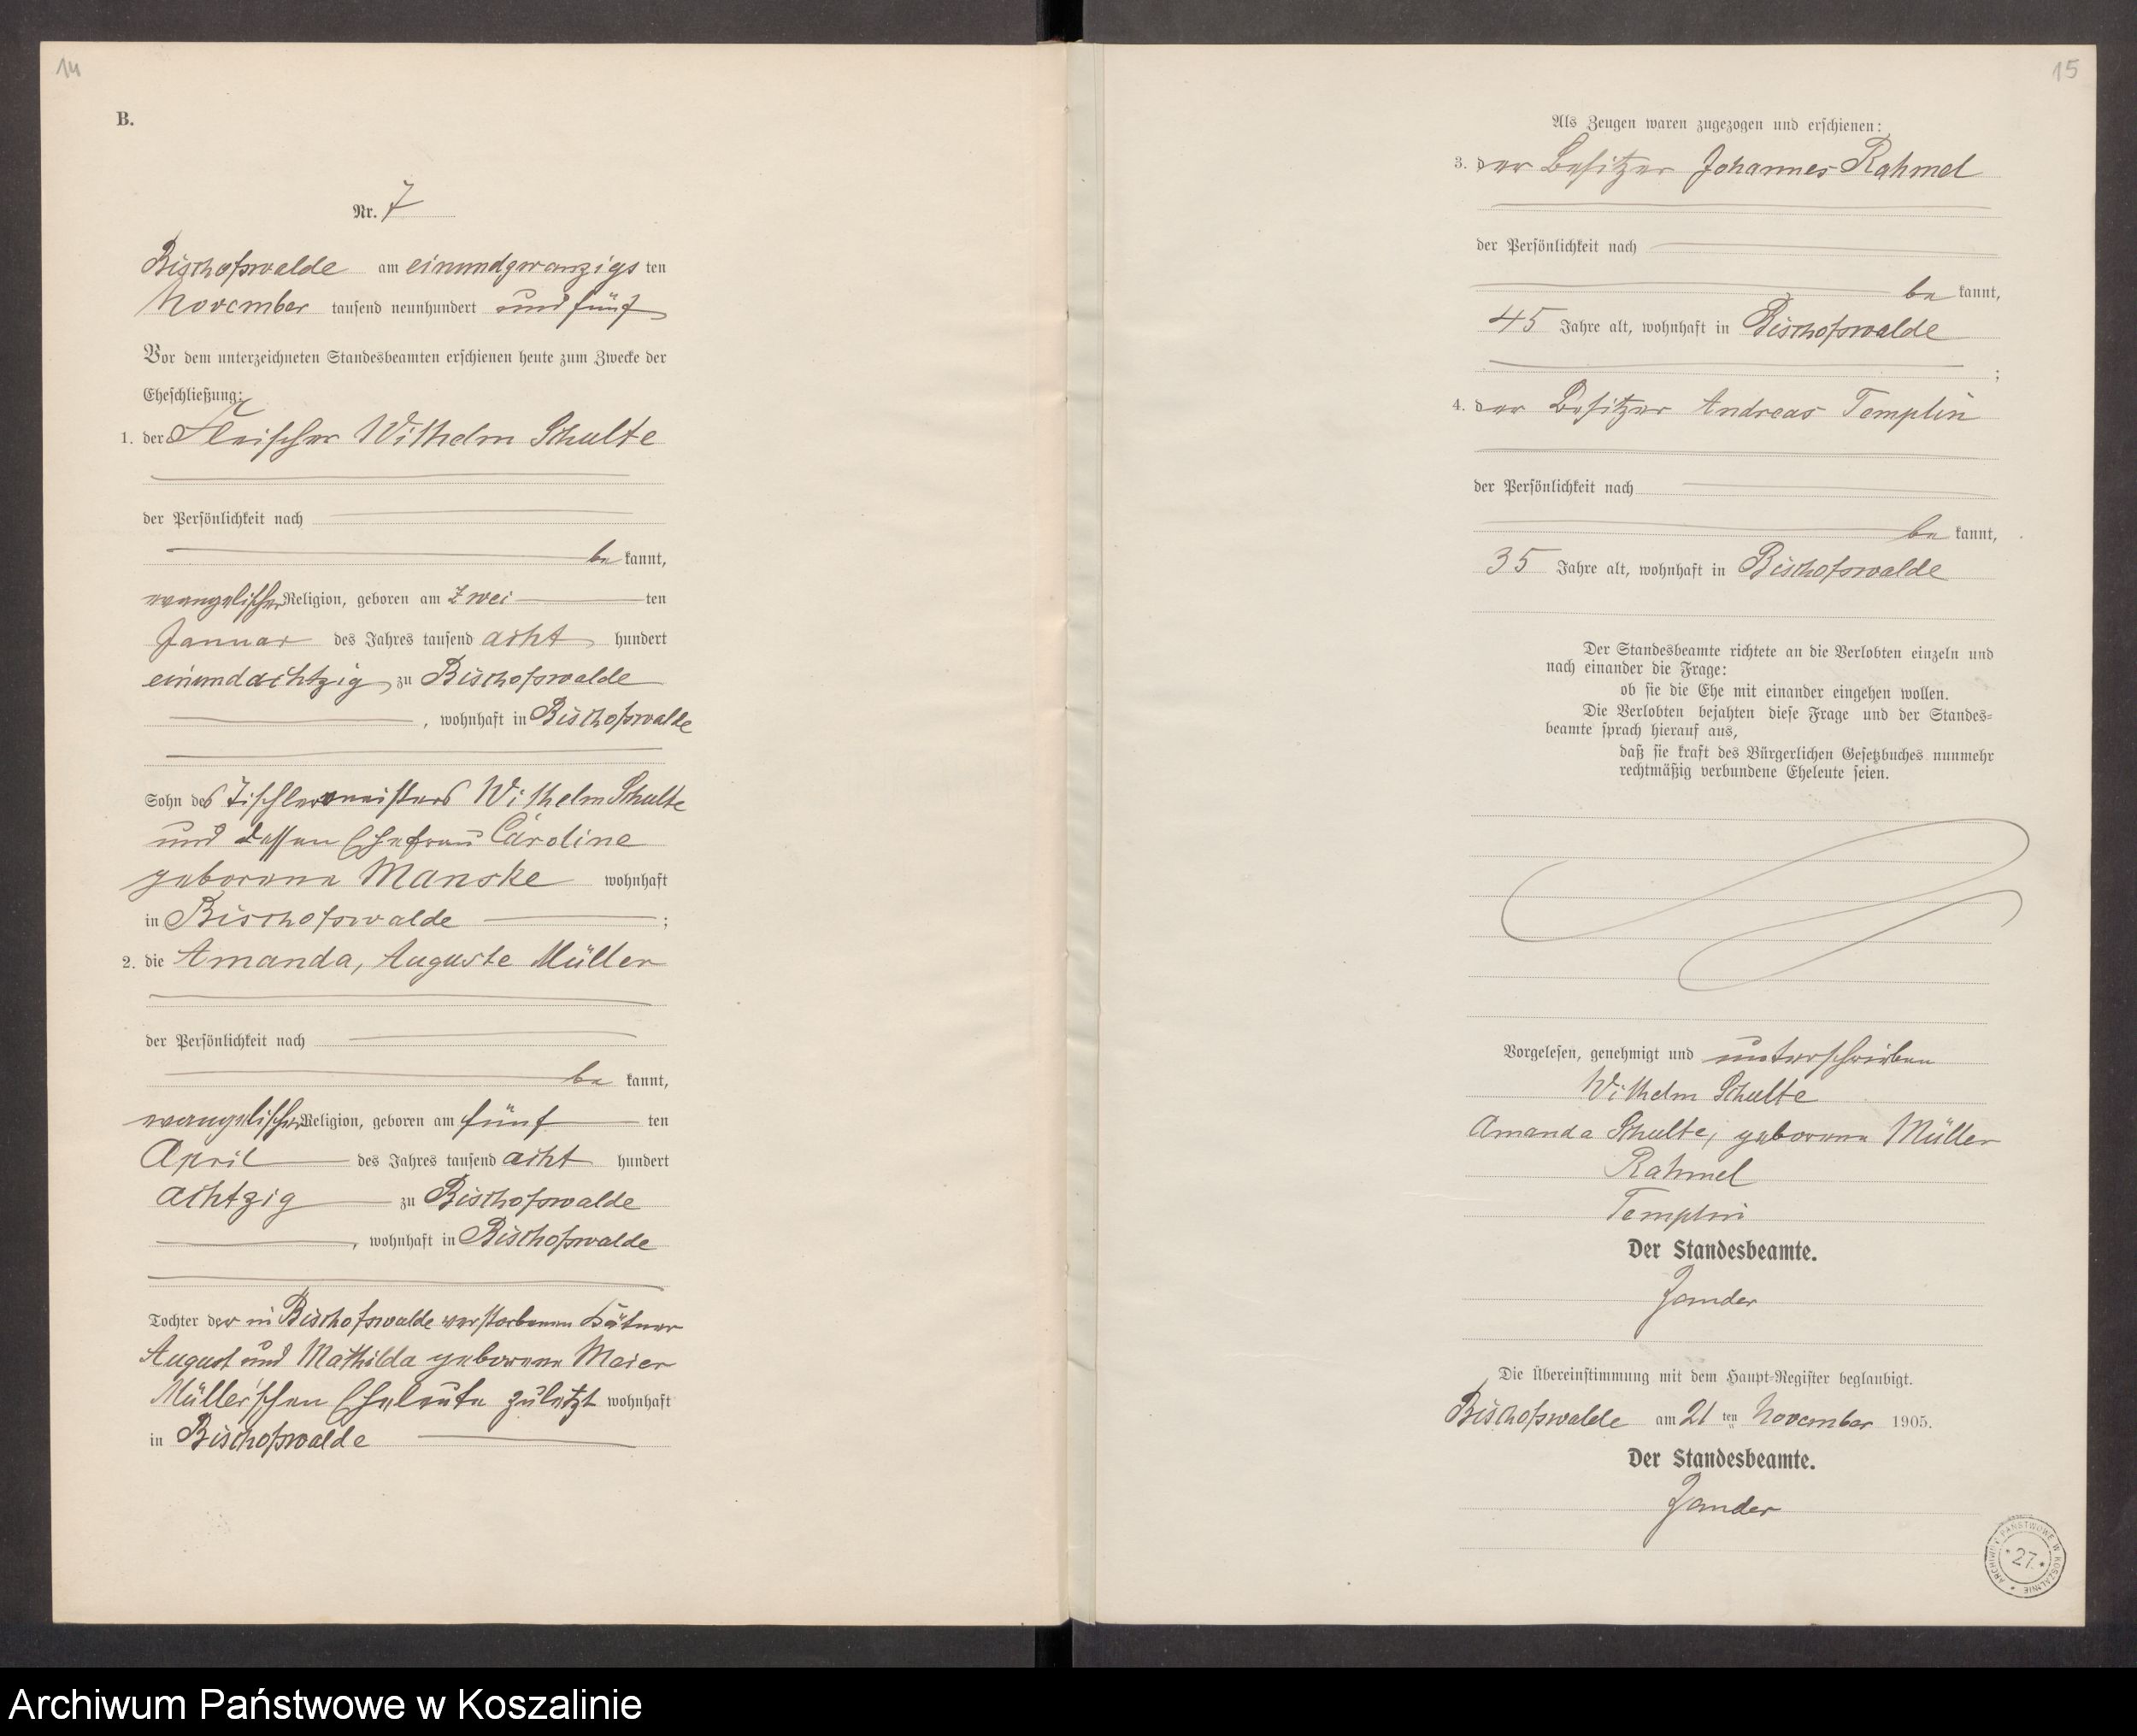 14
B.
Nr. 7
Bischofswalde am einundzwanzigs ten
November tausend neunhundert und fünf
Vor dem unterzeichneten Standesbeamten erschienen heute zum Zwecke der
Eheschließung:
1. der Fleischer Wilhelm Schulte
der Persönlichkeit nach
be kannt,
evangelischer Religion, geboren am zwei ten
Januar des Jahres tausend acht hundert
einundachtzig zu Bischofswalde
, wohnhaft in Bischofswalde
Sohn des Tischlermeisters Wilhelm Schulte
und dessen Ehefrau Caroline
geborene Manske wohnhaft
in Bischofswalde ;
2. die Amanda, Auguste Müller
der Persönlichkeit nach
be kannt,
evangelischer Religion, geboren am fünf ten
April des Jahres tausend acht hundert
achtzig zu Bischofswalde
, wohnhaft in Bischofswalde
Tochter der in Bischofswalde verstorbenen Kätner
August und Mathilda geborene Maier
Müller'schen Eheleute zuletzt wohnhaft
in Bischofswalde
15
Als Zeugen waren zugezogen und erschienen:
3. der Besitzer Johannes Rahmel
der Persönlichkeit nach
be kannt,
45 Jahre alt, wohnhaft in Bischofswalde
;
4. der Besitzer Andreas Templin
der Persönlichkeit nach
be kannt,
35 Jahre alt, wohnhaft in Bischofswalde
Der Standesbeamte richtete an die Verlobten einzeln und
nach einander die Frage:
ob sie die Ehe mit einander eingehen wollen.
Die Verlobten bejahten diese Frage und der Standes-
beamte sprach hierauf aus,
daß sie kraft des Bürgerlichen Gesetzbuches nunmehr
rechtmäßig verbundene Eheleute seien.
Vorgelesen, genehmigt und unterschrieben
Wilhelm Schulte
Amanda Schulte, geborene Müller
Rahmel
Templin
Der Standesbeamte.
Zander
Die Übereinstimmung mit dem Haupt-Register beglaubigt.
Bischofswalde am 21 ten November 1905.
Der Standesbeamte.
Zander
ARCHIWUM PAŃSTWOWE W KOSZALINIE
* 27 *
Archiwum Państwowe w Koszalinie